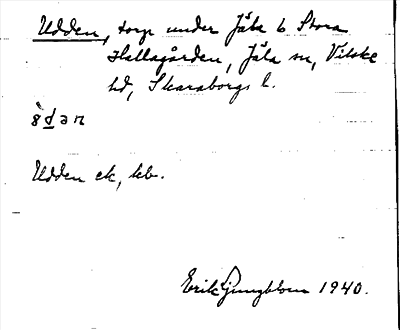 Udden, torp under Jäla 6 Stora
Hallagården, Jäla sn, Vilske
hd, Skaraborgs l.
Udden ek, kb.
Erik Ljungblom 1940.